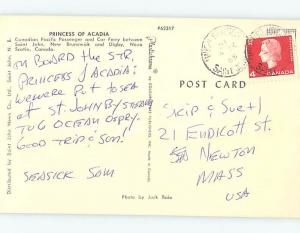 PRINCESS OF ACADIA
Canadian Pacific Passenger and Car Ferry between
Saint John, New Brunswick and Digby, Nova
Scotia, Canada.
P62317
ON BOARD THE STR.
PRINCESS OF ACADIA:
WE WERE PUT TO SEA
AT ST. JOHN BY STEAM
TUG OCEAN OSPREY.
GOOD TRIP & SUN!
SEASICK SAM
POST CARD
SKIP & SUE
21 ENDICOTT ST
NEWTON
MASS
USA
CANADA
4
Photo by Jack
Distributed by Saint John News Co. Ltd., Saint John, N. B.